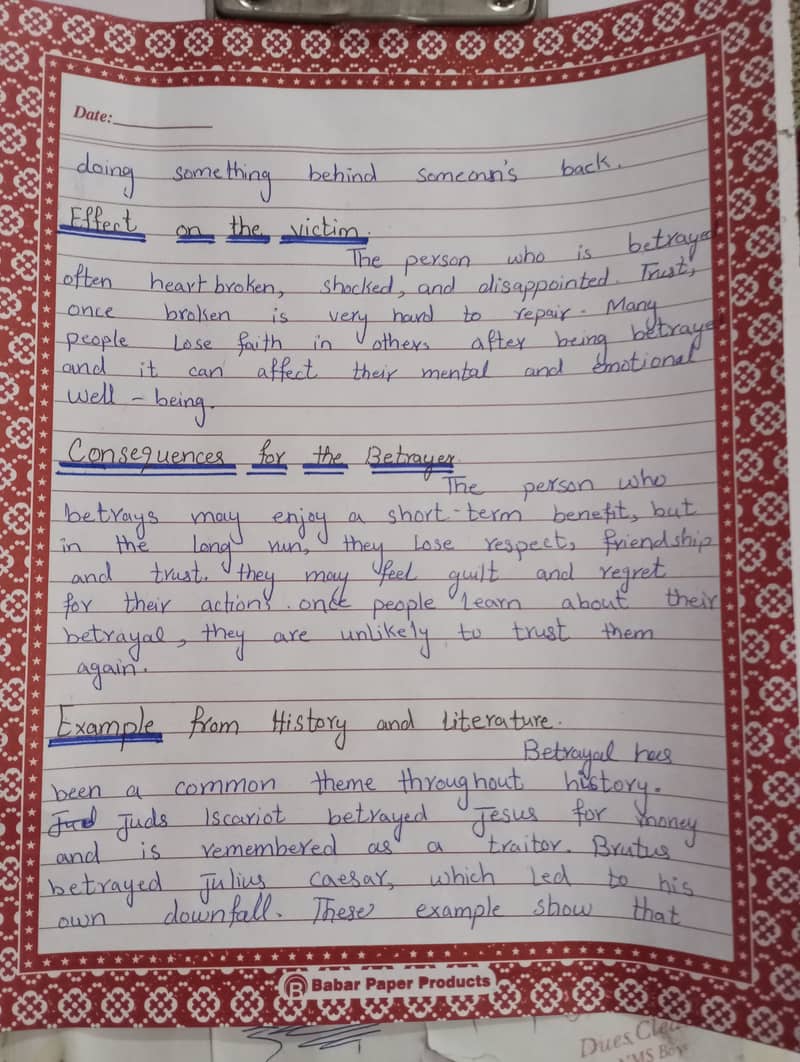 Date:
doing something behind someonn's back.
Effect on the victim.
The person who is betrayed
often heart broken, shocked, and disappointed. Trust,
once broken is very hard to repair. Many
people Lose faith in others after being betrayed
and it can affect their mental and emotional
well-being.
Consequences for the Betrayer.
The person who
betrays may enjoy a short-term benefit, but
in the long run, they Lose respect, friendship
and trust. they may feel guilt and regret
for their actions. once people learn about their
betrayal, they are unlikely to trust them
again.
Example from History and Literature.
Betrayal has
been a common theme throughout history.
Juds Iscariot betrayed Jesus for money
and is remembered as a traitor. Brutus
betrayed Julius Caesar, which Led to his
own downfall. These example show that
Babar Paper Products